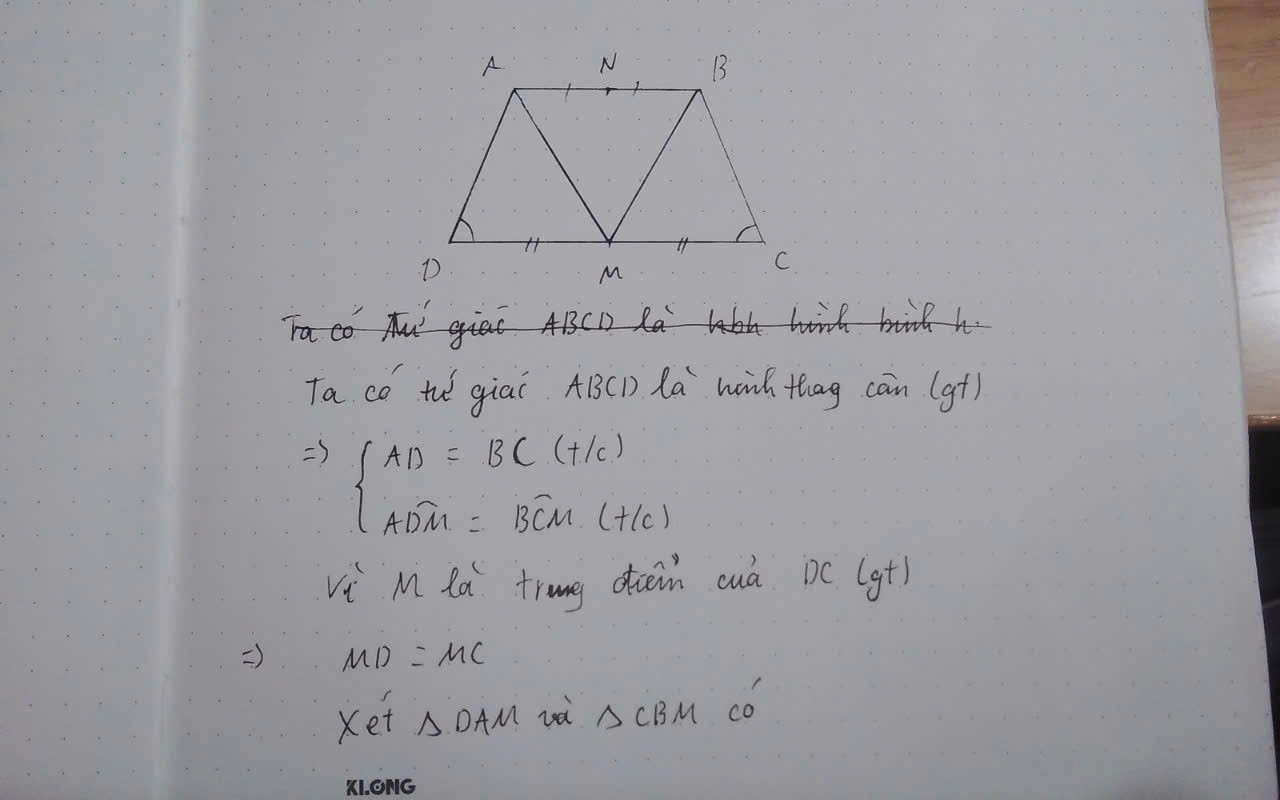 A N B
D M C
Ta có tứ giác ABCD là hbh hình bình h.
Ta có tứ giác ABCD là hình thag cân (gt)
=> { AD = BC (t/c)
ADM̂ = BĈM (t/c)
Vì M là trung điểm của DC (gt)
=> MD = MC
Xét △ DAM và △ CBM có
KLONG